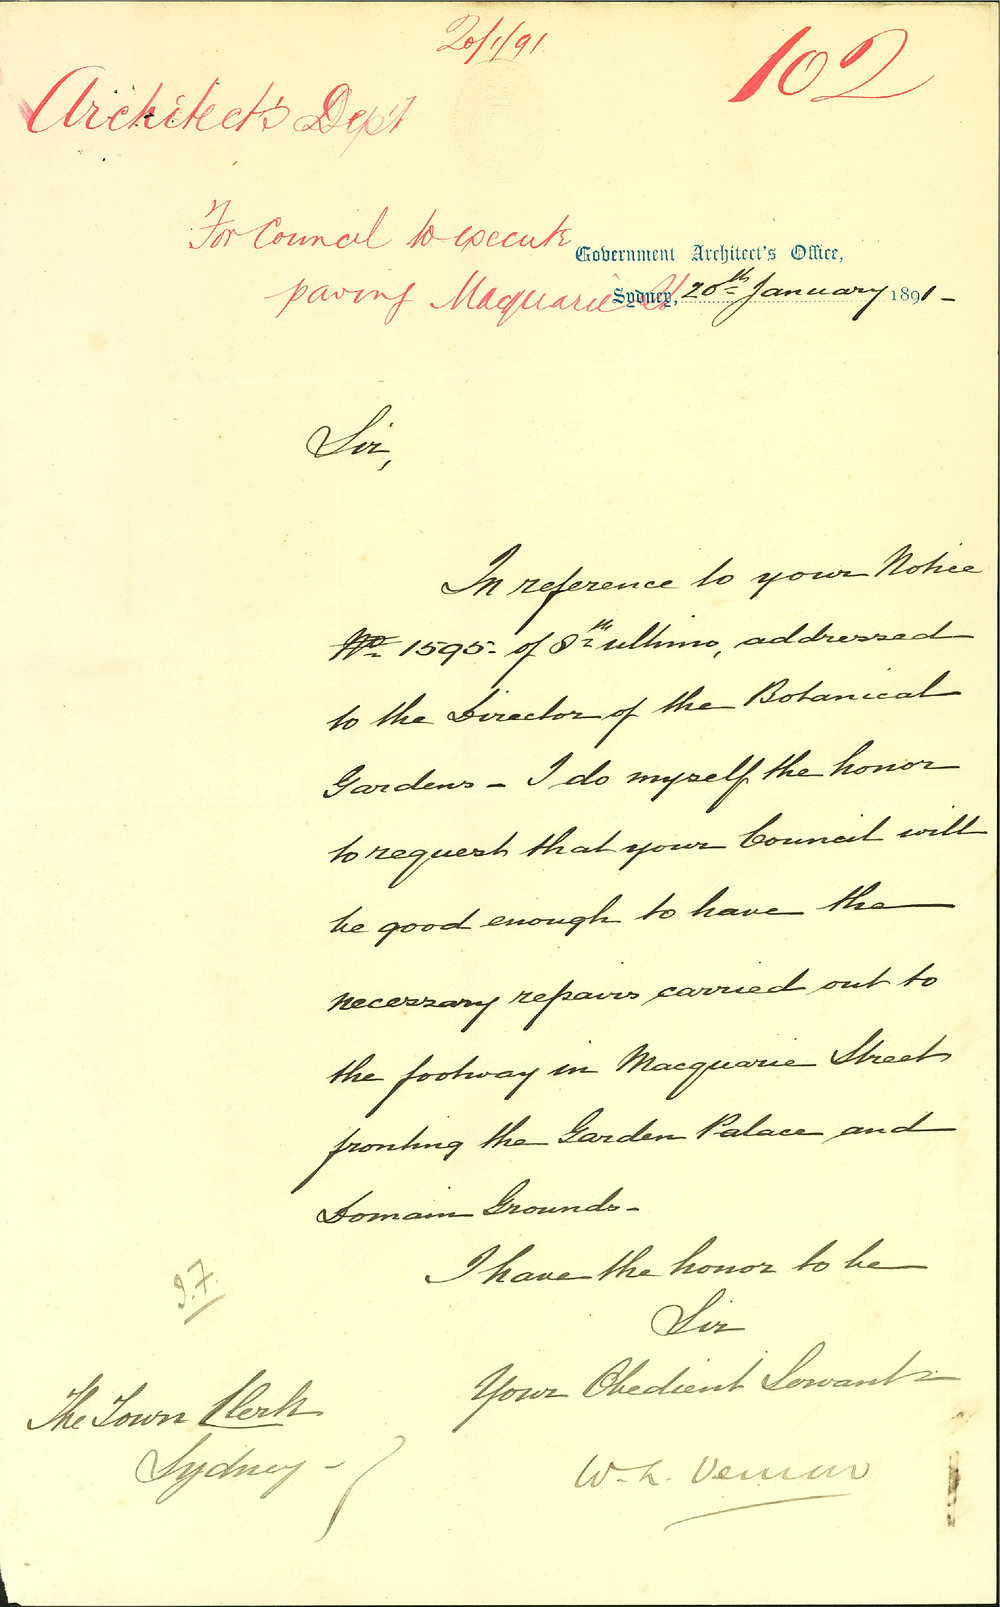 20/1/91
102
Architect's Dep't
For Council to execute
paving Macquarie St
Government Architect's Office,
Sydney, 20th January 1891-
Sir,
In reference to your Notice
No 1595 of 8th ultimo, addressed
to the Director of the Botanical
Gardens - I do myself the honor
to request that your Council will
be good enough to have the
necessary repairs carried out to
the footway in Macquarie Street
fronting the Garden Palace and
Domain Grounds-
I have the honor to be
Sir
Your Obedient Servant
W. L. Vernon
The Town Clerk
Sydney -